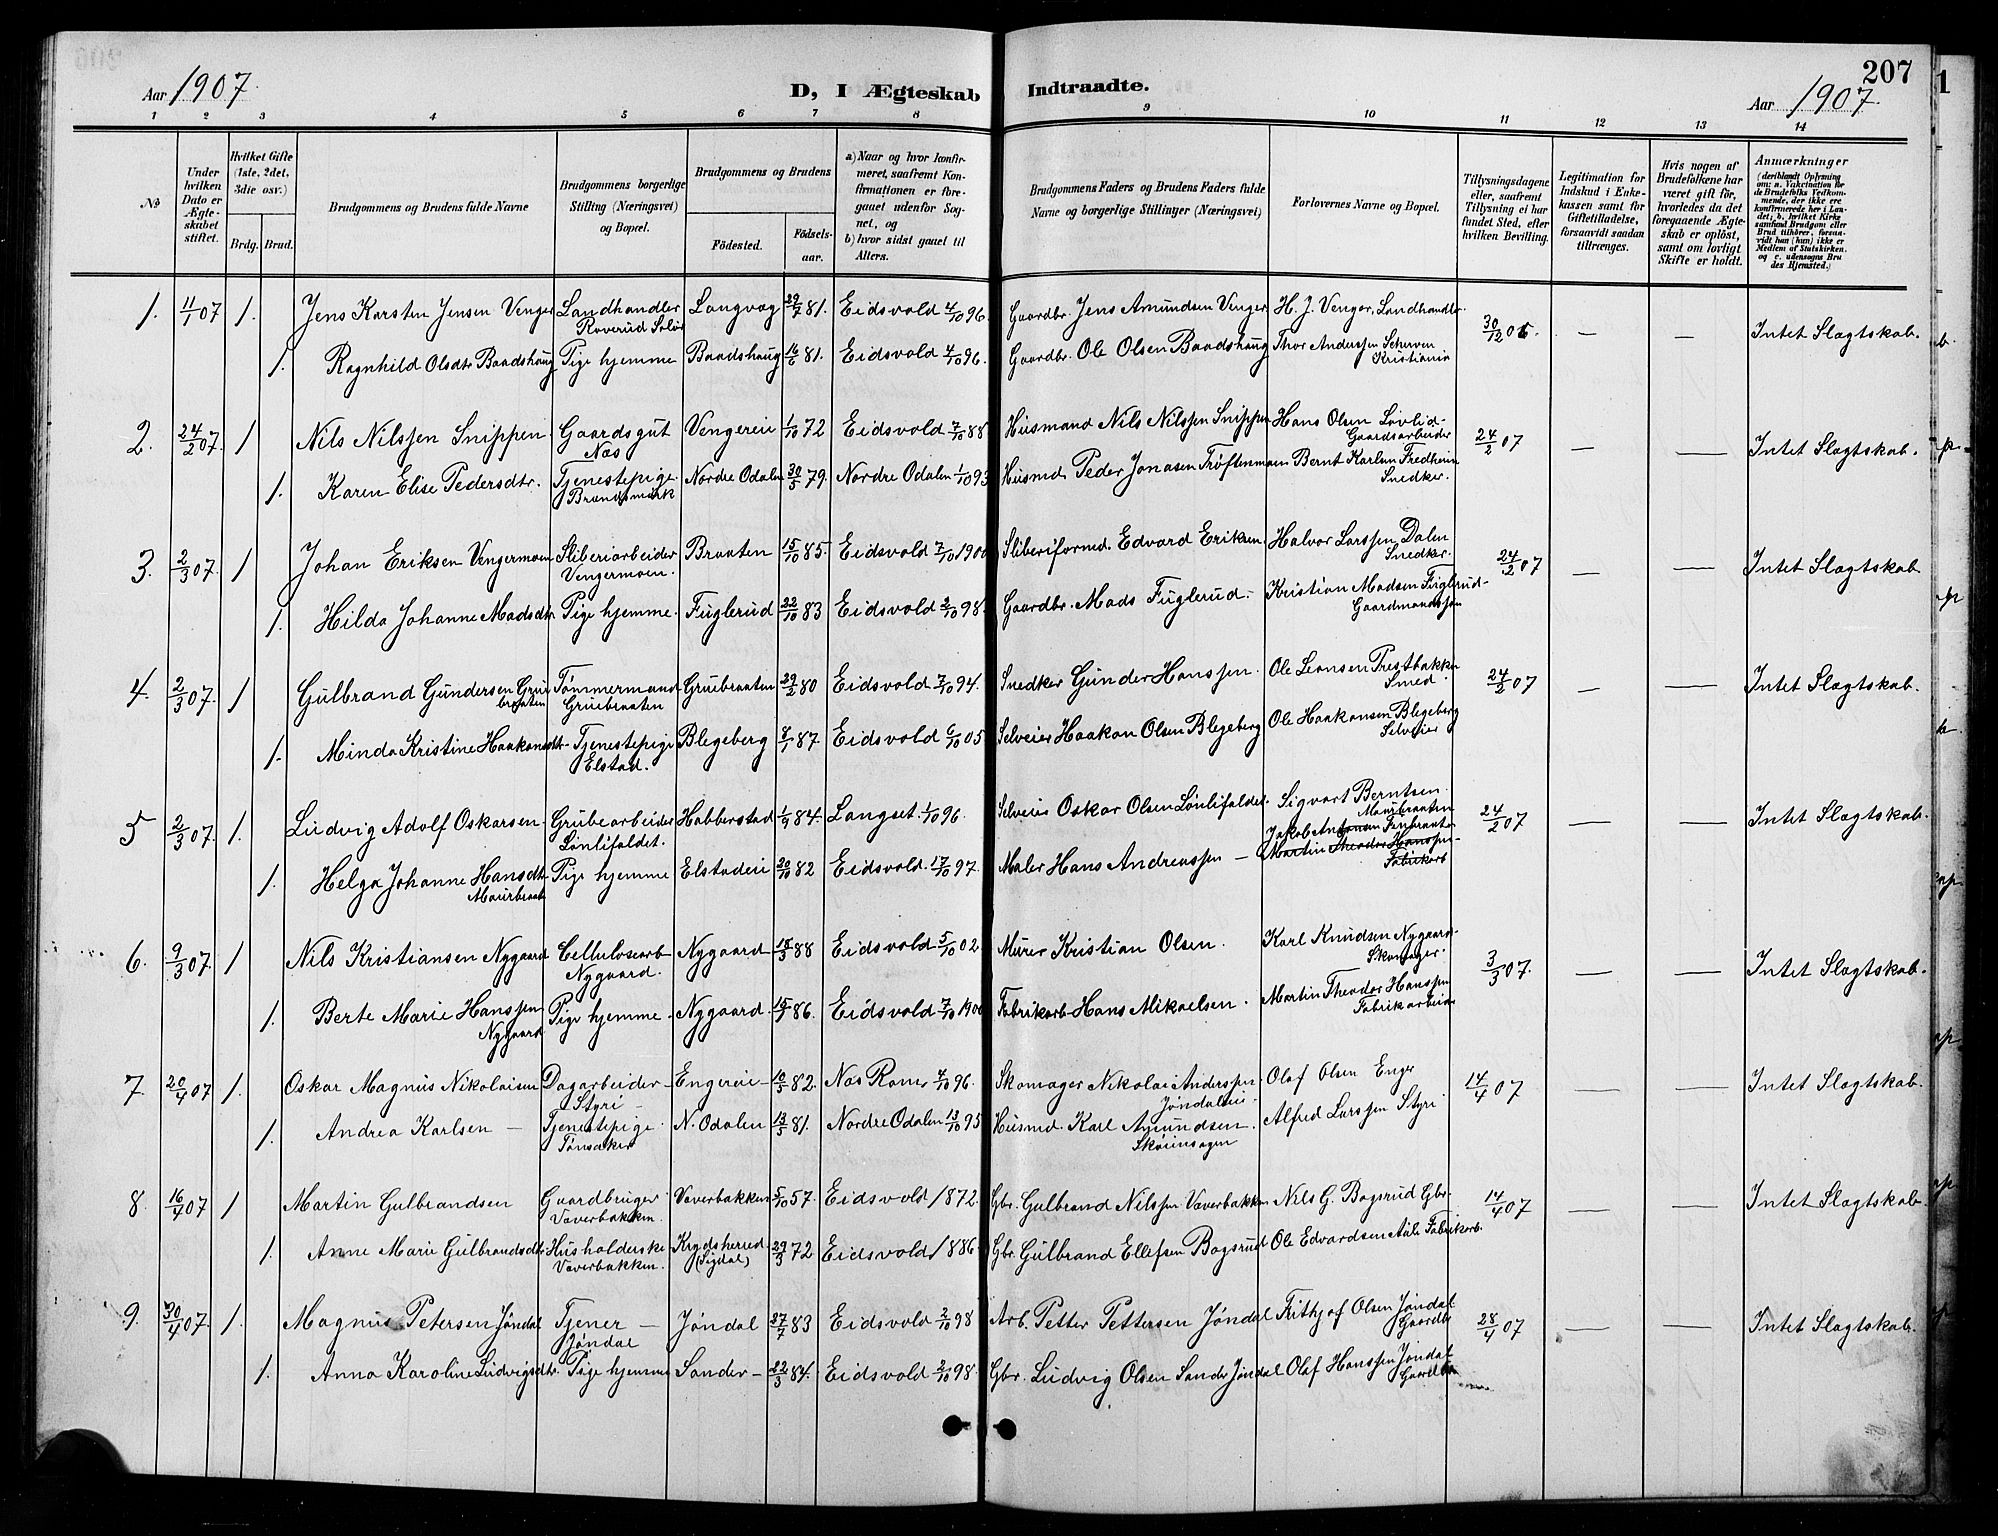 207
Aar 1907.
D, I Ægteskab Indtraadte.
Aar 1907.
1 2 3 4 5 6 7 8 9 10 11 12 13 14
No
Under hvilken Dato er Ægteskabet stiftet.
Hvilket Gifte (1ste, 2det, 3die osv.)
Brdg. Brud.
Brudgommens og Brudens fulde Navne
Brudgommens borgerlige Stilling (Næringsvei) og Bopæl.
Brudgommens og Brudens
Fødested.
Fødselsaar.
a) Naar og hvor konfirmeret, saafremt Konfirmationen er foregaaet udenfor Sognet, og
b) hvor sidst gaaet til Alters.
Brudgommens Faders og Brudens Faders fulde Navne og borgerlige Stillinger (Næringsvei)
Forlovernes Navne og Bopæl.
Tillysningsdagene eller, saafremt Tillysning ei har fundet Sted, efter hvilken Bevilling.
Legitimation for Indskud i Enkekassen samt for Giftetilladelse, forsaavidt saadan tiltrænges.
Hvis nogen af Brudefolkene har været gift før, hvorledes da det foregaaende Ægteskab er opløst, samt om lovligt Skifte er holdt.
Anmærkninger (deriblandt Oplysning om: a. Vakcination for de Brudefolks Vedkommende, der ikke ere konfirmerede her i Landet; b. hvilket Kirkesamfund Brudgom eller Brud tilhører, forsaavidt han (hun) ikke er Medlem af Statskirken, og c. udensogns Brudes Hjemsted.)
1. 11/1 07 1. Jens Karsten Jensen Venger Landhandler Roverud Solør Langvag 29/7 81. Eidsvold 4/10 96. Gaardbr. Jens Amundsen Venger H. J. Venger, Landhandler 30/12 06. — — Intet Slægtskab.
1. Ragnhild Olsdtr Baadshaug Pige hjemme Baadshaug 16/6 81. Eidsvold 4/10 96. Gaardbr. Ole Olsen Baadshaug Thor Anderssen Scherven Kristiania
2. 24/2 07 1 Nils Nilssen Snippen Gaardsgut Næs Vengereie 1/10 72 Eidsvold 7/10 88 Husmand Nils Nilssen Snippen Hans Olsen Løvlid Gaardsarbeider 24/2 07 — — Intet Slægtskab.
1. Karen Elise Pedersdtr. Tjenestepige Brandsmark Nordre Odalen 30/5 79. Nordre Odalen 1/10 93 Husmd Peder Jonasen Trøftenmoen Bernt Karlsen Fredheim Snedker.
3. 2/3 07. 1 Johan Eriksen Vengermoen Sliberiarbeider Vengermoen. Braaten 15/10 85. Eidsvold 7/10 1900 Sliberiformd. Edvard Eriksen. Halvor Larssen Dalen Snedker. 24/2 07 — — Intet Slægtskab
1. Hilda Johanne Madsdtr. Pige hjemme. Fuglerud 22/10 83 Eidsvold 2/10 98. Gaardbr. Mads Fuglerud. Kristian Madsen Fuglerud Gaardmandssøn
4. 2/3 07. 1 Gulbrand Gundersen Gruebraaten Tømmermand Gruebraaten Gruebraaten 29/2 80 Eidsvold 7/10 94. Snedker Gunder Hanssen. Ole Larsen Prestbakken Smed 24/2 07 — — Intet Slægtskab.
1. Minda Kristine Haakonsdtr Tjenestepige Elstad. Blegeberg 8/1 87 Eidsvold 6/10 05 Selveier Haakon Olsen Blegeberg Ole Haakonsen Blegeberg Selveier
5 2/3 07. 1. Ludvig Adolf Oskarsen Grubearbeider Lønlifaldet. Habberstad 1/9 84. Langset 1/10 96. Selveier Oskar Olsen Lønlifaldet. Sigvart Berntsen Maurbraaten 24/2 07 — — Intet Slægtskab.
1. Helga Johanne Hansdtr Maurbraaten Pige hjemme Elstadeie 20/10 82 Eidsvold 17/10 97. Maler Hans Andreassen — Jakob Antonsen Martin Theodor Hanssen Fabrikarb
6. 9/3 07. 1 Nils Kristiansen Nygaard Cellulosearb Nygaard. Nygaard 18/3 88 Eidsvold 5/10 02. Murer Kristian Olsen. Karl Knudsen Nygaard Skomager. 3/3 07. — — Intet Slægtskab.
1. Berte Marie Hanssen Nygaard Pige hjemme Nygaard. 15/7 86. Eidsvold 7/10 1900 Fabrikarb Hans Mikaelsen. Martin Theodor Hanssen Fabrikarbeider
7. 20/4 07 1. Oskar Magnus Nikolaisen Dagarbeider Styri Engereie 10/5 82. Næs Rom. 4/10 96. Skomager Nikolai Anderssen Jøndaleie. Olaf Olsen Enger 14/4 07 — — Intet Slægtskab.
1. Andrea Karlsen — Tjenestepige Tønsaker N. Odalen 13/5 81. Nordre Odalen 13/10 95 Husmd. Karl Amundsen Skøiensagen Alfred Larssen Styri.
8. 16/4 07 1 Martin Gulbrandsen Gaardbruger Væverbakken. Væverbakken 5/10 57. Eidsvold 1872. Gbr. Gulbrand Nilssen Væverbakken Nils G. Bogsrud Gbr. 14/4 07 — — Intet Slægtskab.
1. Anne Marie Gulbrandsdtr. Husholderske Væverbakken. Krydsherred (Sigdal) 29/3 72 Eidsvold 1886 Gbr. Gulbrand Ellefsen Bogsrud Ole Edvardsen Fabrikarb.
9. 30/4 07. 1. Magnus Petersen Jøndal Tjener Jøndal Jøndal 27/7 83 Eidsvold 2/10 98 Arb. Petter Pettersen Jøndal Frithjof Olsen Jøndal Gaardbr 28/4 07 — — Intet Slægtskab.
1. Anna Karoline Ludvigsdtr. Pige hjemme Sander 22/3 84. Eidsvold 2/10 98. Gbr. Ludvig Olsen Sander Jøndal Olaf Hanssen Jøndal Gaardbr